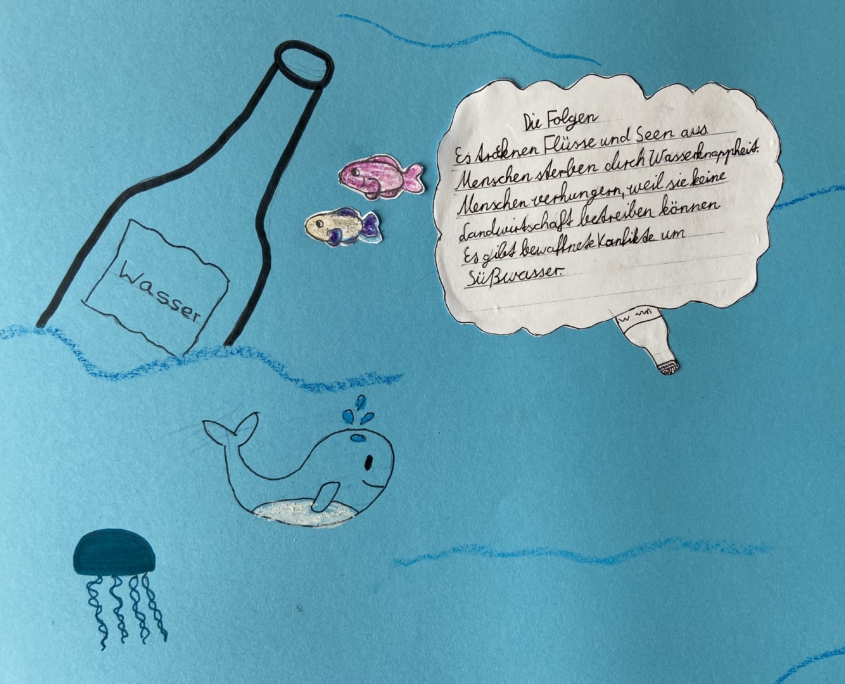 Wasser
Die Folgen
Es trocknen Flüsse und Seen aus
Menschen sterben durch Wasserknappheit.
Menschen verhungern, weil sie keine
Landwirtschaft betreiben können
Es gibt bewaffnete Konflikte um
Süßwasser.